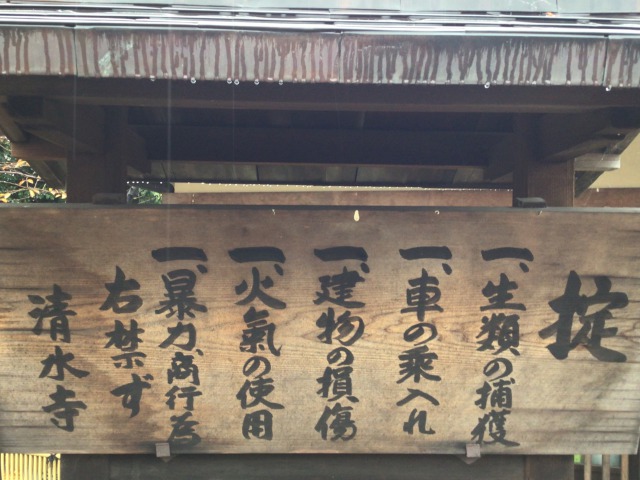 掟
一、生類の捕獲
一、車の乗入れ
一、建物の損傷
一、火氣の使用
一、暴力、商行為
右禁ず
清水寺